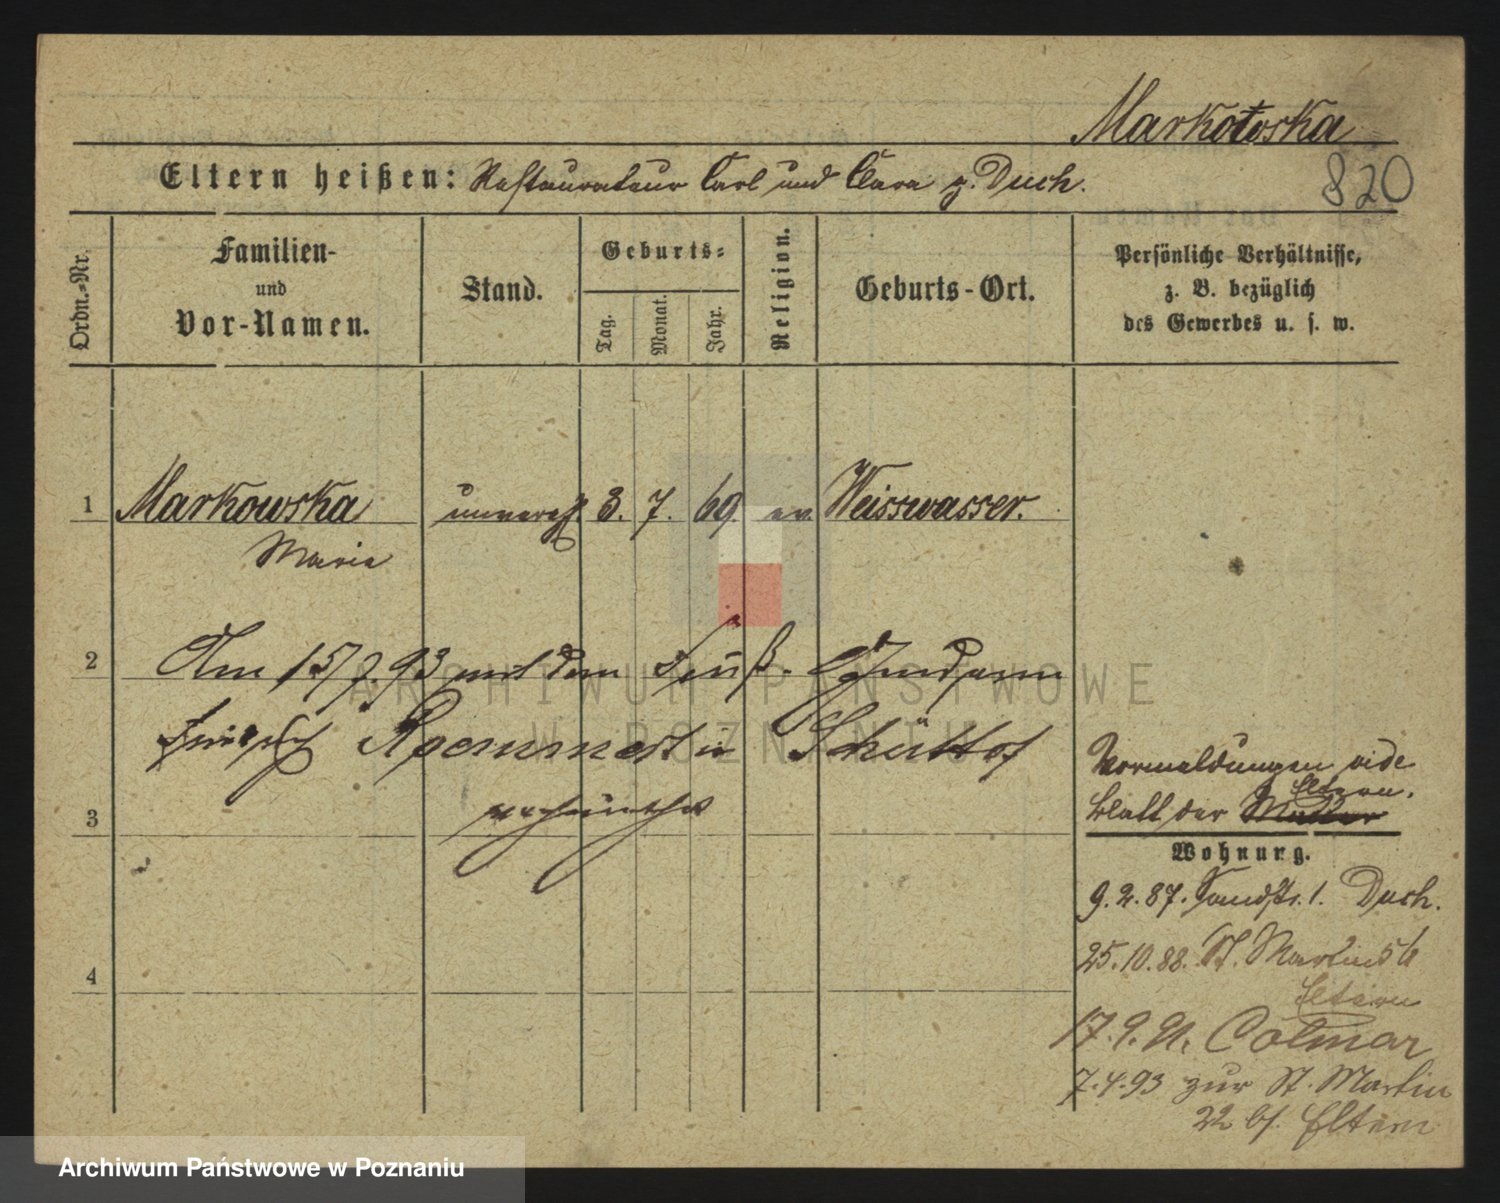 Markowska
820
Eltern heißen: Restaurateur Carl und Clara g. Duch.
Ordn.-Nr.
Familien-
und
Vor-Namen.
Stand.
Geburts-
Tag.
Monat.
Jahr.
Religion.
Geburts-Ort.
Persönliche Verhältnisse,
z. B. bezüglich
des Gewerbes u. s. w.
1 Markowska unvereh. 3. 7. 69 ev. Weisswasser.
Marie
2 Am 15/7.93 mit dem Fuß-Gendarm
Roemmert in Schüttof
Vormeldungen vide
Eltern.
Blatt der Mutter
3
Wohnung.
9.2.87. Sandstr. 1. Duch.
25.10.88. St. Martin 56
Eltern
4
17.9.91. Colmar
7.4.93 zur St. Martin
22 bei Eltern
ARCHIWUM PAŃSTWOWE
W POZNANIU
Archiwum Państwowe w Poznaniu